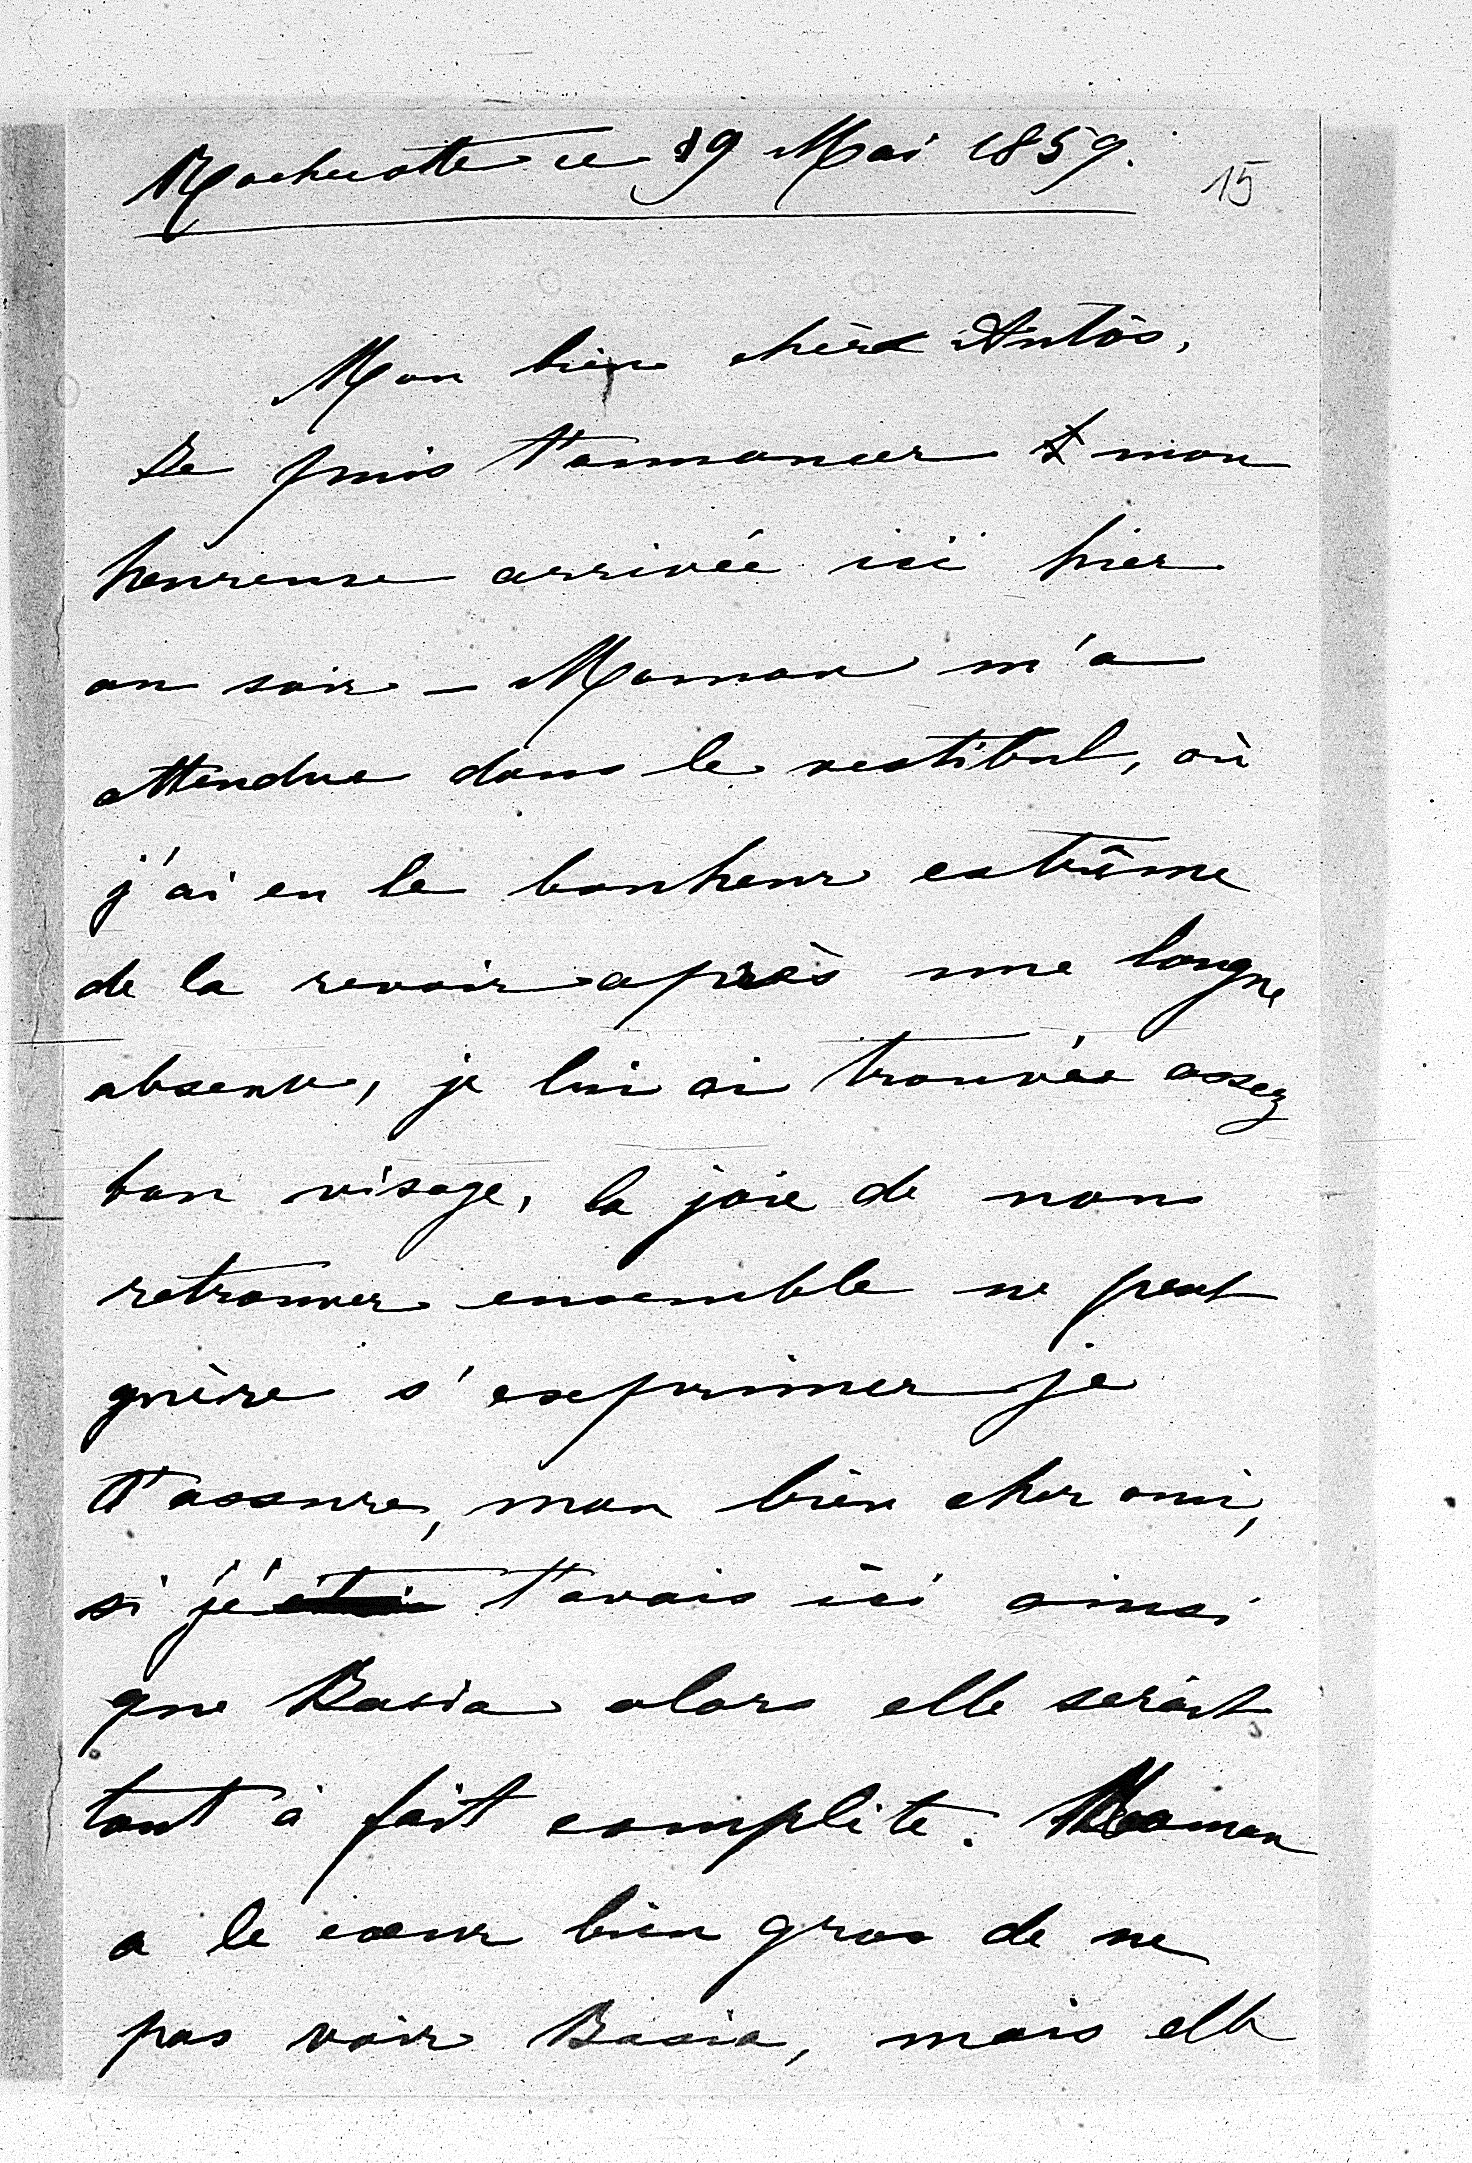 Rochecotte ce 19 Mai 1859.
15
Mon bien cher Antôs,
Je puis t'annoncer mon
heureuse arrivée ici hier
au soir – Maman m'a
attendue dans le vestibul, où
j'ai eu le bonheur extrême
de la revoir après une longue
absence, je lui ai trouvée assez
bon visage, la joie de nous
retrouver ensemble ne peut
guère s'exprimer je
t'assure, mon bien cher ami,
si je t'avais ici ainsi
que Basia alors elle serait
tout à fait complète. Maman
a le coeur bien gros de ne
pas voir Basia, mais elle